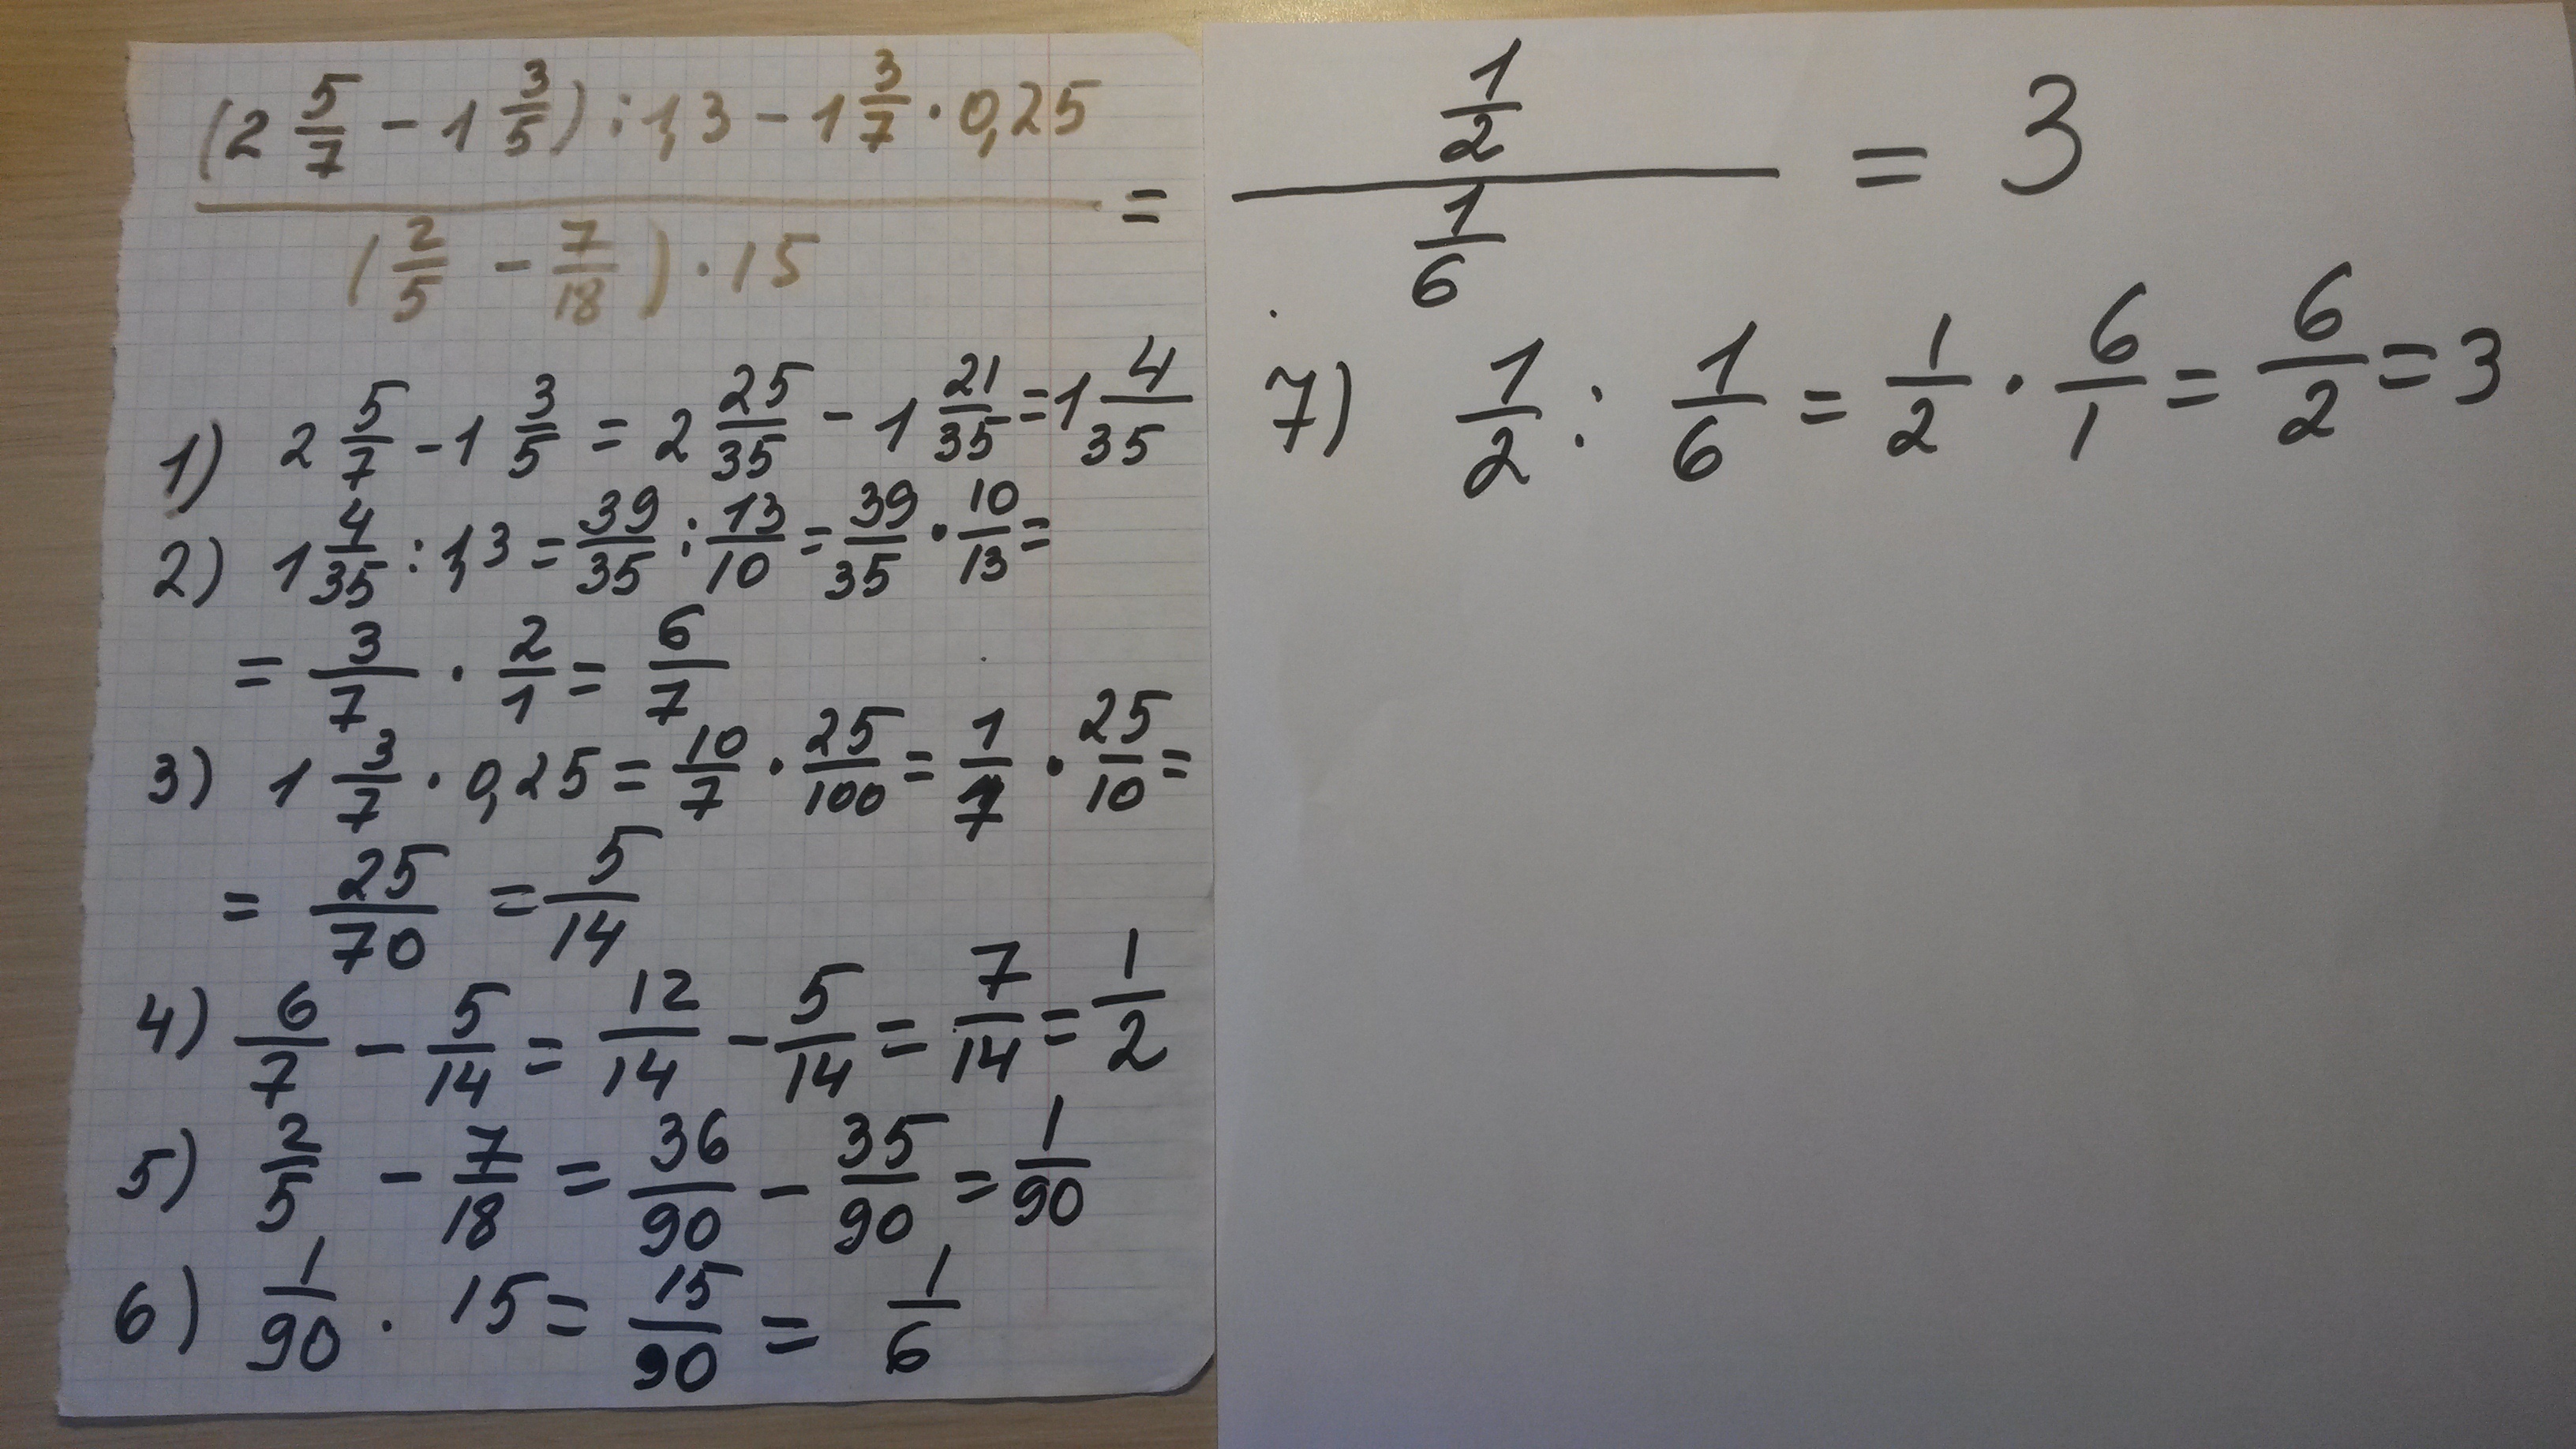 (2 5/7 - 1 3/5) : 1,3 - 1 3/7 · 0,25
(2/5 - 7/18) · 15
=
1) 2 5/7 - 1 3/5 = 2 25/35 - 1 21/35 = 1 4/35
2) 1 4/35 : 1,3 = 39/35 : 13/10 = 39/35 · 10/13 =
= 3/7 · 2/1 = 6/7
3) 1 3/7 · 0,25 = 10/7 · 25/100 = 1/7 · 25/10 =
= 25/70 = 5/14
4) 6/7 - 5/14 = 12/14 - 5/14 = 7/14 = 1/2
5) 2/5 - 7/18 = 36/90 - 35/90 = 1/90
6) 1/90 · 15 = 15/90 = 1/6
1/2
1/6
= 3
7) 1/2 : 1/6 = 1/2 · 6/1 = 6/2 = 3